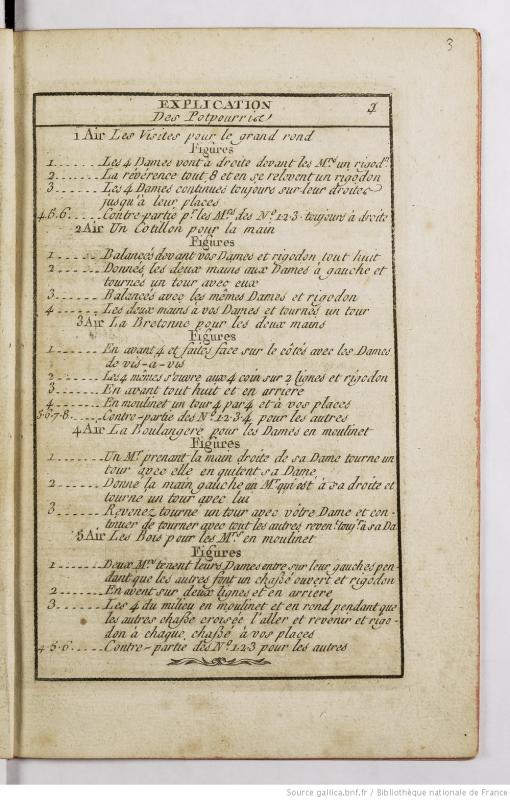 3
EXPLICATION
Des Potpourris 1
1 Air Les Visites pour le grand rond
Figures
1 . . . . . . Les 4 Dames vont à droite devant les Mrs un rigodn
2 . . . . . . La révérence tout 8 et en se relevent un rigodon
3 . . . . . . Les 4 Dames continues toujours sur leur droites
jusqu'à leur places
4.5.6 . . . . . Contre-partie pr les Mrs des No 1.2.3. toujours à droite
2 Air Un Cotillon pour la main
Figures
1 . . . . . . Balancés devant vos Dames et rigodon tout huit
2 . . . . . . Donnés les deux mains aux Dames à gauche et
tournés un tour avec eux
3 . . . . . . Balancés avec les mêmes Dames et rigodon
4 . . . . . . Les deux mains à vos Dames et tournés un tour
3 Air La Bretonne pour les deux mains
Figures
1 . . . . . . En avant 4 et faites face sur le côtés avec les Dames
de vis-a-vis
2 . . . . . . Les 4 mêmes s'ouvre aux 4 coin sur 2 lignes et rigodon
3 . . . . . . En avant tout huit et en arriere
4 . . . . . . En moulinet un tour 4 par 4 et à vos places
5.6.7.8 . . . . Contre-partie des No 1.2.3.4 pour les autres
4 Air La Boulangere pour les Dames en moulinet
Figures
1 . . . . . . Un Mr prenant la main droite de sa Dame tourne un
tour avec elle en quitent sa Dame
2 . . . . . . Donne la main gauche au Mr qui est à sa droite et
tourne un tour avec lui
3 . . . . . . Revenez tourne un tour avec vôtre Dame et con-
tinuer de tourner avec tout les autres reven.t touj.r à sa Da
5 Air Les Bois pour les Mrs en moulinet
Figures
1 . . . . . . Deux Mrs tenent leurs Dames entre sur leur gauches pen-
dant que les autres font un chaßé ouvert et rigodon
2 . . . . . . En avent sur deux lignes et en arriere
3 . . . . . . Les 4 du milieu en moulinet et en rond pendant que
les autres chaße croisée l'aller et revenir et rigo-
don à chaque chaßé à vos places
4.5.6 . . . . . Contre-partie des No 1.2.3 pour les autres
Source gallica.bnf.fr / Bibliothèque nationale de France